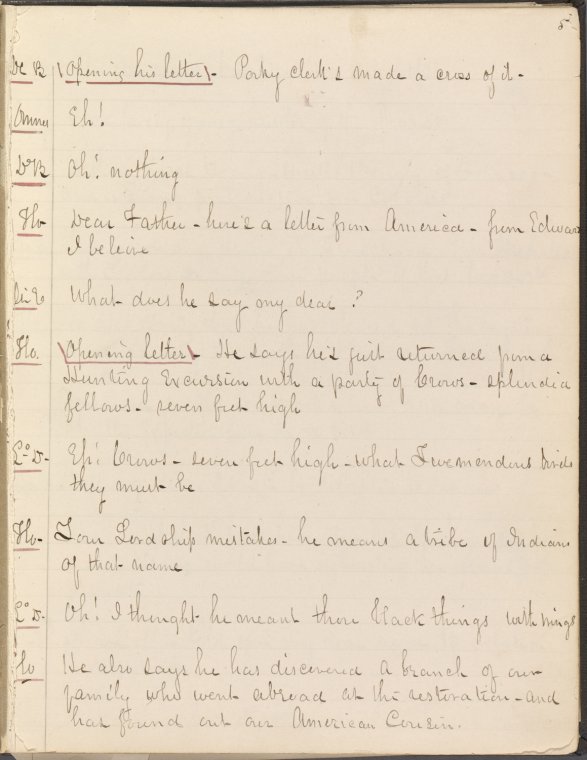 5
De B (Opening his letter) - Porky clerk's made a cross of it -
Omnes Eh!
De B Oh! nothing
Flo Dear Father - here's a letter from America - from Edward
I beleive
Sir E What does he say my dear ?
Flo. (Opening letter) - He says he's just returned from a
Hunting Excursion with a party of Crows - splendid
fellows - seven feet high
Ld D - Eh! Crows - seven feet high - what Tremendous birds
they must be
Flo - Your Lordship mistakes - he means a tribe of Indians
of that name
Ld D - Oh! I thought he meant those black things with wings
Flo He also says he has discovered a branch of our
family who went abroad at the restoration - and
has found out our American Cousin.